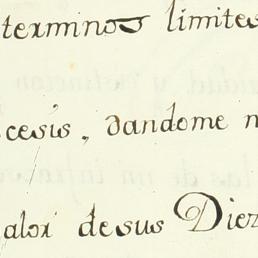 terminos limites
cesis, dandome n
alor de sus Diez